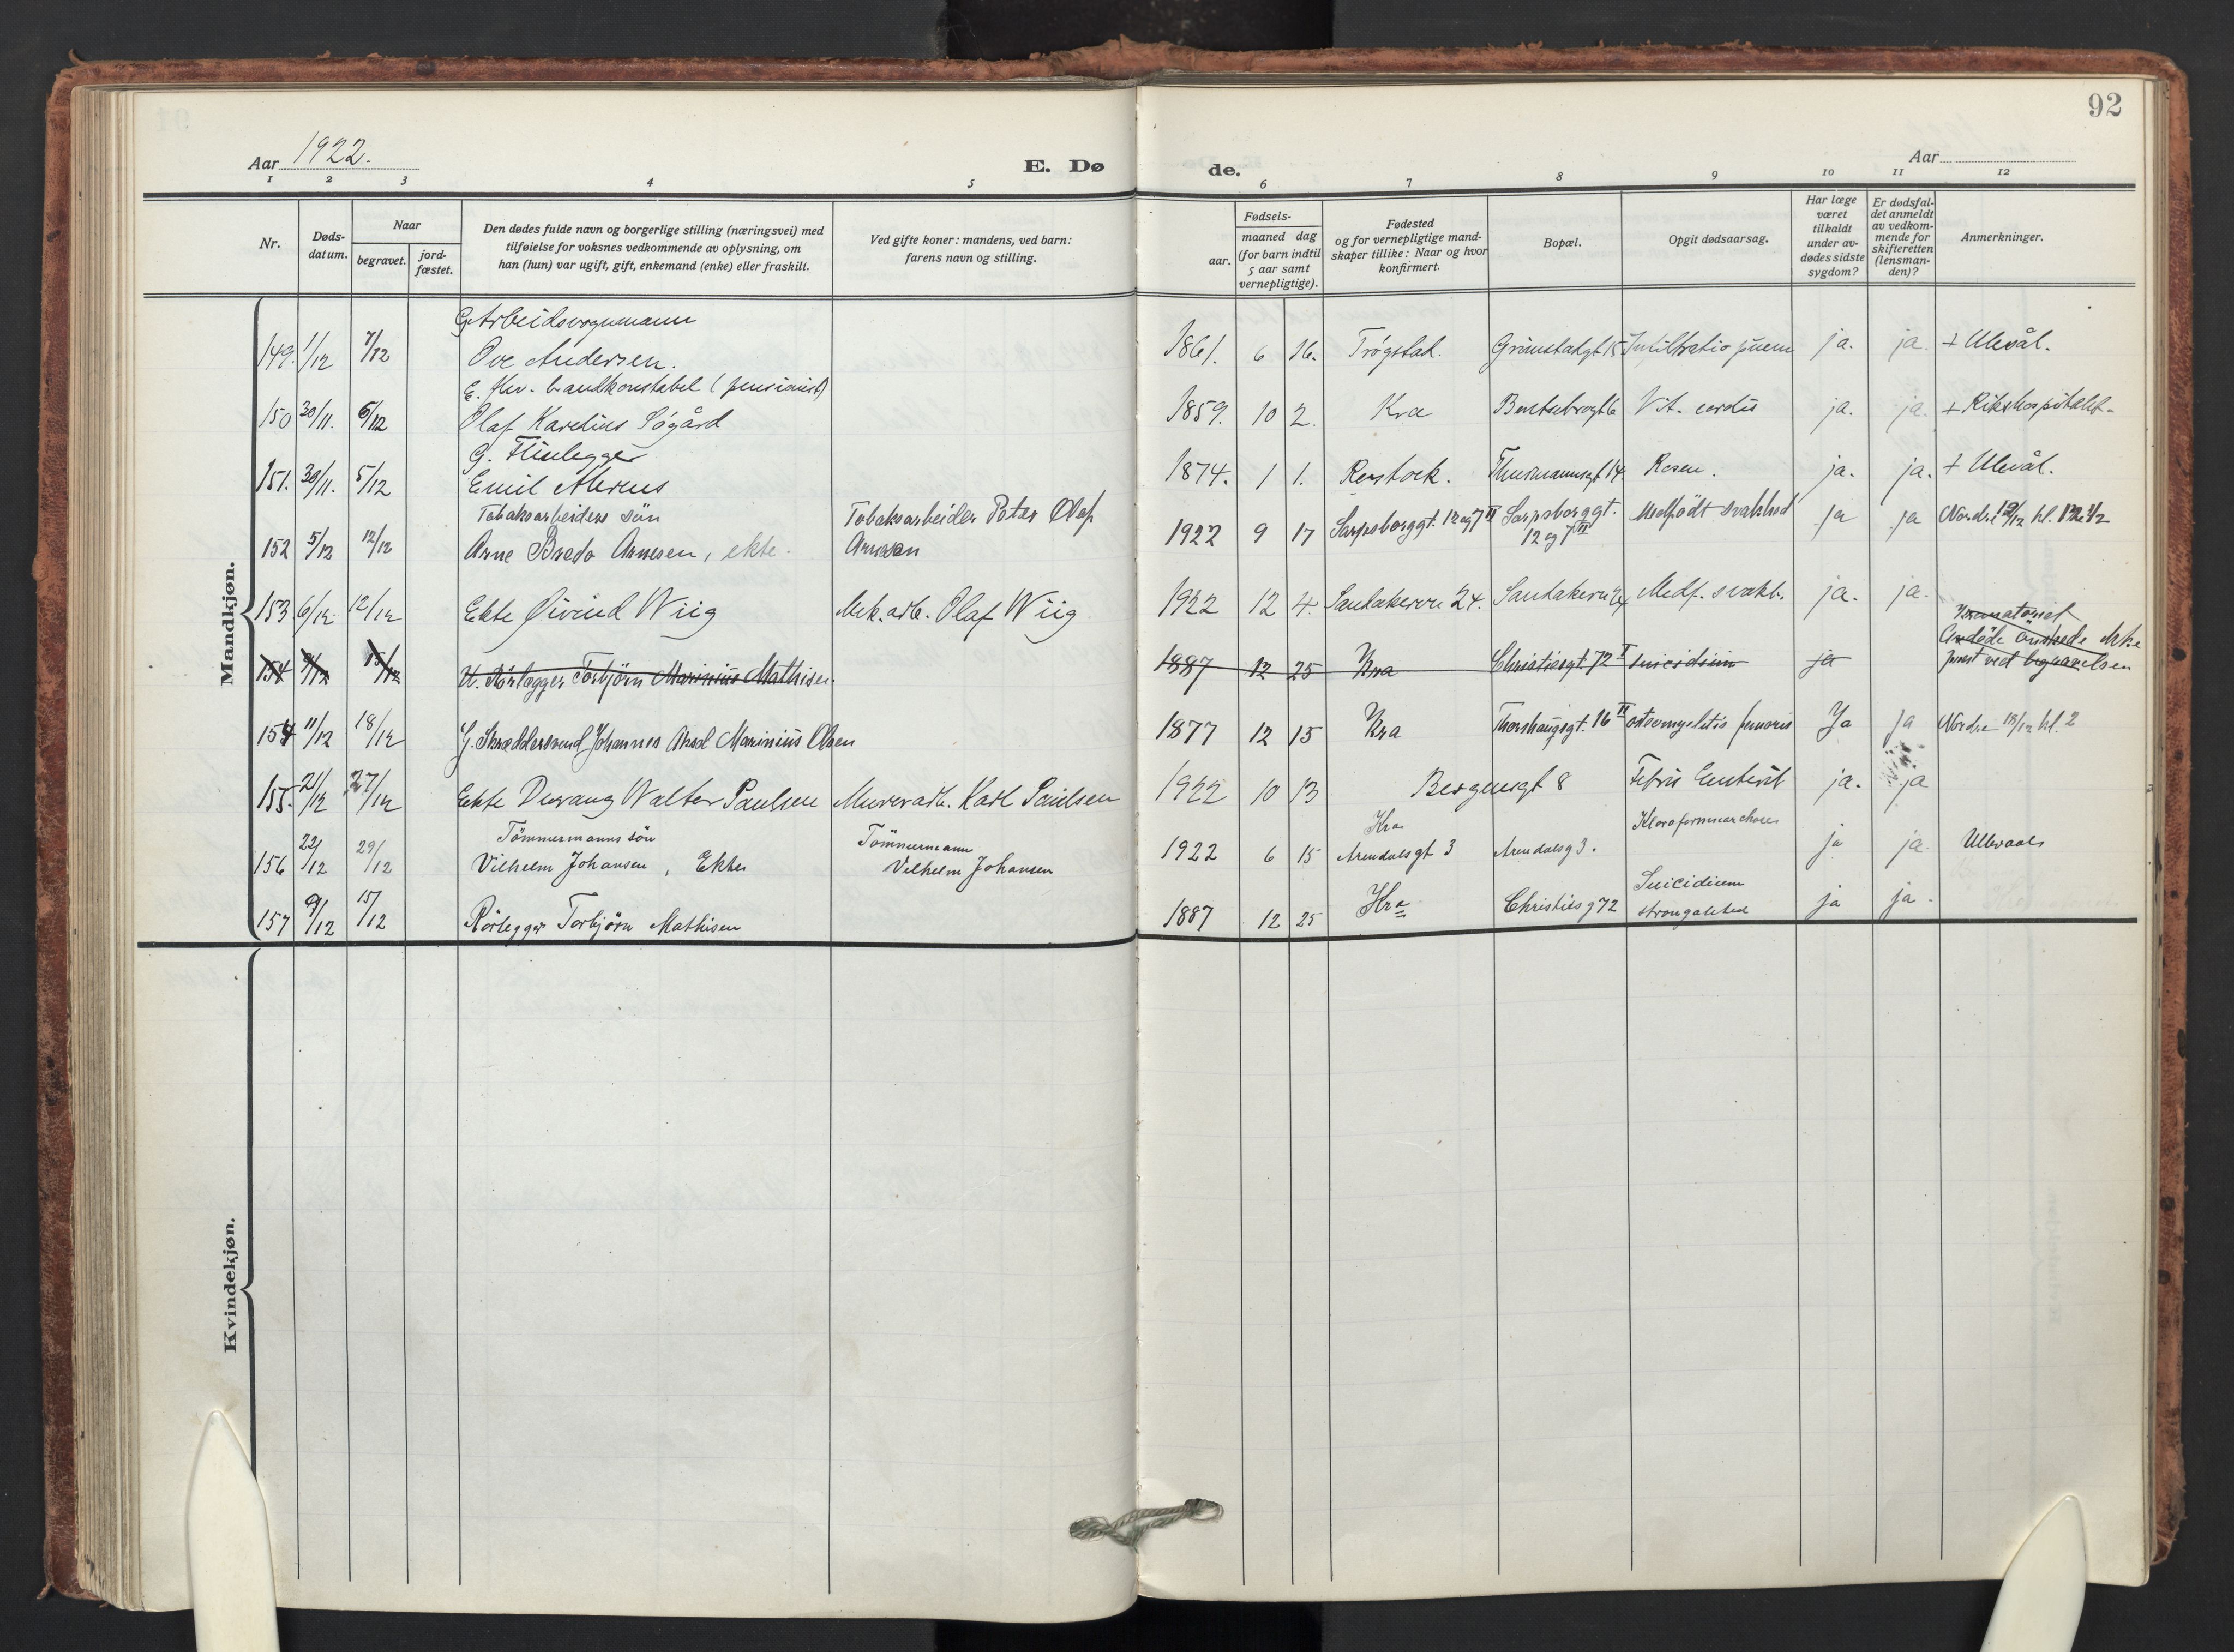 92
Aar 1922.
E. Dø
de.
Aar
1 2 3 4 5 6 7 8 9 10 11 12
Nr.
Døds-
datum.
Naar
begravet.
jord-
fæstet.
Den dødes fulde navn og borgerlige stilling (næringsvei) med
tilføielse for voksnes vedkommende av oplysning, om
han (hun) var ugift, gift, enkemand (enke) eller fraskilt.
Ved gifte koner: mandens, ved barn:
farens navn og stilling.
Fødsels-
aar.
maaned dag
(for barn indtil
5 aar samt
vernepligtige).
Fødested
og for vernepligtige mand-
skaper tillike: Naar og hvor
konfirmert.
Bopæl.
Opgit dødsaarsag.
Har læge
været
tilkaldt
under av-
dødes sidste
sygdom?
Er dødsfal-
det anmeldt
av vedkom-
mende for
skifteretten
(lensman-
den)?
Anmerkninger.
Mandkjøn.
G. Arbeidsvognmann
149. 1/12 7/12 Ove Andersen. 1861. 6 16. Trøgstad. Grimstadgt 15 Infiltratio pneum ja. ja. + Ulevål.
E. fhv. brandkonstabel (pensionist)
150 30/11. 6/12 Olaf Karelius Søgård 1859. 10 2. Kra Bentsebrogt 6 Vit. cordis ja. ja. + Rikshospitalet.
G.
151. 30/11. 5/12 Emil Ahrens 1874. 1 1. Rostock. Thurmannsgt 14. Rosen. ja. ja. + Ulevål.
Tobaksarbeiders sön Tobaksarbeider Peter Olaf
152 5/12 12/12 Arne Bredo Arnesen, ekte. Arnesen 1922 9 17 Sarpsborggt. 12 og 7 II Sarpsborggt. 12 og 7 II Medfödt svakhed ja ja Nordre 12/12 kl.
153 6/12. 12/12 Ekte Øivind Wiig Mek. arb. Olaf Wiig 1922 12 4. Sandakervn 24. Sandakervn 24 Medf. svakh. ja. ja.
Krematoriet
Avdöde önskede ikke
prest ved begravelsen
154 9/12 15/12 U. Rörlægger Torbjörn Marinius Mathisen. 1887 12 25 Kra Christiesgt. 72 I suicidium ja
154 11/12 18/12 G. Skræddersvend Johannes Aksel Marinius Olsen 1877 12 15 Kra Thorshaugsgt. 16 II osteomyelitis femoris Ja Ja Nordre 18/12 kl. 2
155. 21/12 27/12 Ekte Durang Walter Paulsen Murerarb. Karl Paulsen 1922 10 13 Bergensgt 8 Febris Enterit ja. ja
Tömmermanns sön Tömmermann Kra
156 22/12 29/12 Vilhelm Johansen, Ekte Vilhelm Johansen 1922 6 15 Arendalsgt 3 Arendalsg 3. ja ja Ullevaals
157 9/12 15/12 Rörlegger Torbjörn Mathisen 1887 12 25 Kra Christiesg 72 Suicidium ja ja.
Kvindekjøn.